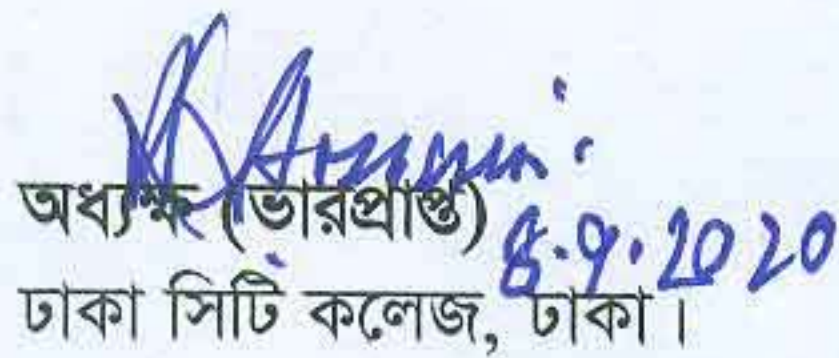 অধ্যক্ষ (ভারপ্রাপ্ত)
8.9.2020
ঢাকা সিটি কলেজ, ঢাকা।